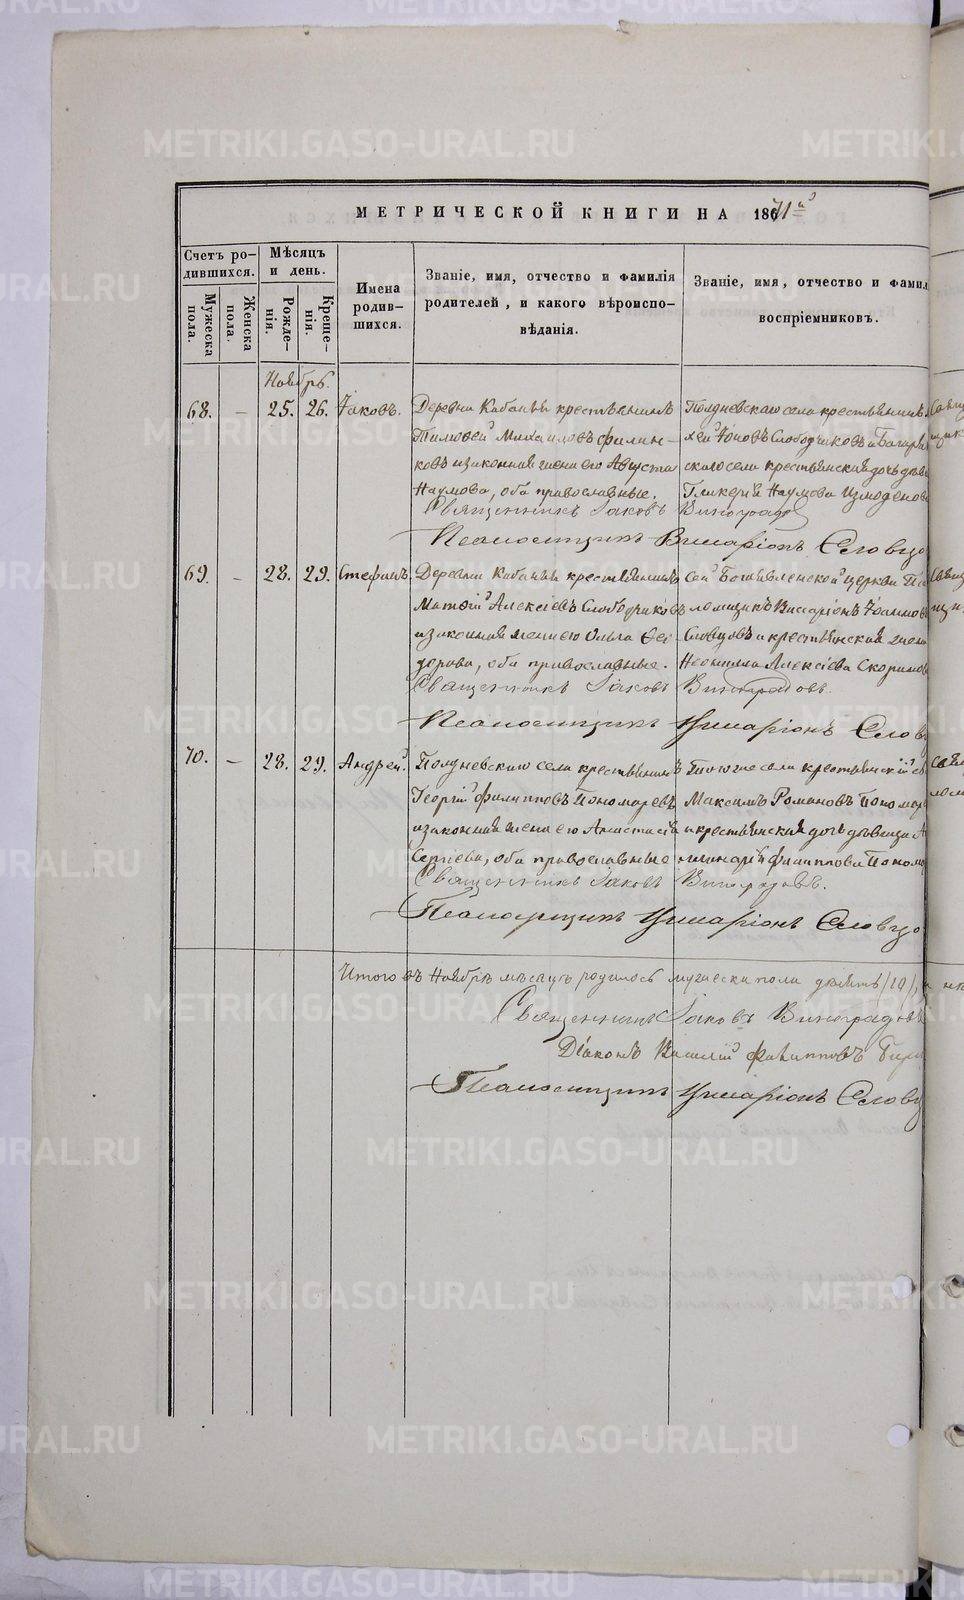 METRIKI.GASO-URAL.RU
МЕТРИЧЕСКОЙ КНИГИ НА 1871й
Счетъ ро-
дившихся.
Мужеска
пола.
Женска
пола.
Мѣсяцъ
и день.
Рожде-
нія.
Креще-
нія.
Имена
родив-
шихся.
Званіе, имя, отчество и фамилія
родителей, и какого вѣроиспо-
вѣданія.
Званіе, имя, отчество и фамил
воспріемниковъ.
Ноябрь.
68. – 25. 26. Іаковъ.
Деревни Кабаньи крестьянинъ
Тимоѳей Михаиловъ Филин-
ковъ и законная жена его Августа
Наумова, оба православные.
Полдневскаго села крестьянинъ
Іоновъ Слободчиковъ и
скаго села крестьянская дочь дѣви
Гликерія Наумова Измоденов
Священникъ Іаковъ Виноградов
Псаломщикъ Виссаріонъ Словцо
69. – 28. 29. Стефанъ.
Деревни Кабаньи крестьянинъ
Матѳій Алексіевъ Слободчиковъ
и законная жена его Ольга Ѳео-
дорова, оба православные.
сей Богоявленской церкви Пса
ломщикъ Виссаріонъ Іоанновъ
Словцовъ и крестьянская жена
Неонилла Алексіева
Священникъ Іаковъ Виноградовъ.
Псаломщикъ Виссаріонъ Словц
70. – 28. 29. Андрей.
Полдневскаго села крестьянинъ
Георгій Филипповъ Пономаревъ
и законная жена его Анастасія
Сергіева, оба православные
Тогоже села крестьянскій
Максимъ Романовъ Пономар
и крестьянская дочь дѣвица А
Филиппова Пономар
Священникъ Іаковъ Виноградовъ.
Псаломщикъ Виссаріонъ Словцо
Итого въ Ноябрѣ мѣсяцѣ родилось мужеска пола
Священникъ Іаковъ Виноградовъ
Діаконъ Василій Филипповъ
Псаломщикъ Виссаріонъ Словц